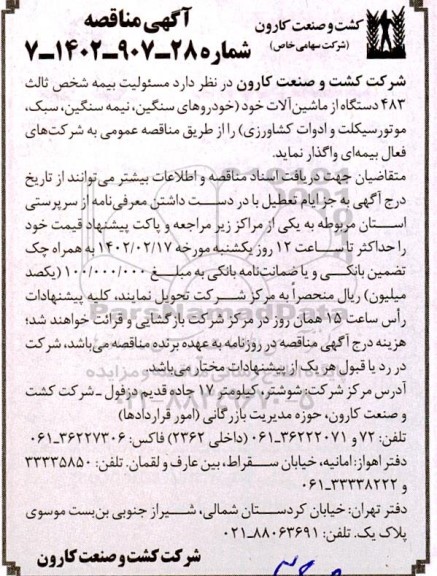 آگهی مناقصه
کشت و صنعت کارون
(شرکت سهامی خاص)
شماره ۲۸_۹۰۷_۱۴۰۲_۷
شرکت کشت و صنعت کارون در نظر دارد مسئولیت بیمه شخص ثالث
۴۸۳ دستگاه از ماشین‌آلات خود (خودروهای سنگین، نیمه سنگین، سبک،
موتورسیکلت و ادوات کشاورزی) را از طریق مناقصه عمومی به شرکت‌های
فعال بیمه‌ای واگذار نماید.
متقاضیان جهت دریافت اسناد مناقصه و اطلاعات بیشتر می‌توانند از تاریخ
درج آگهی به جز ایام تعطیل با در دست داشتن معرفی‌نامه از سرپرستی
استان مربوطه به یکی از مراکز زیر مراجعه و پاکت پیشنهاد قیمت خود
را حداکثر تا ساعت ۱۲ روز یکشنبه مورخه ۱۴۰۲/۰۲/۱۷ به همراه چک
تضمین بانکی و یا ضمانت‌نامه بانکی به مبلغ ۱۰۰/۰۰۰/۰۰۰ (یکصد
میلیون) ریال منحصراً به مرکز شرکت تحویل نمایند، کلیه پیشنهادات
رأس ساعت ۱۵ همان روز در مرکز شرکت بازگشایی و قرائت خواهند شد؛
هزینه درج آگهی مناقصه در روزنامه به عهده برنده مناقصه می‌باشد، شرکت
در رد یا قبول هر یک از پیشنهادات مختار می‌باشد.
آدرس مرکز شرکت: شوشتر، کیلومتر ۱۷ جاده قدیم دزفول _ شرکت کشت
و صنعت کارون، حوزه مدیریت بازرگانی (امور قراردادها)
تلفن: ۷۲ و ۳۶۲۲۲۰۷۱-۰۶۱ (داخلی ۲۳۶۲) فاکس: ۳۶۲۲۷۳۰۶-۰۶۱
دفتر اهواز: امانیه، خیابان سقراط، بین عارف و لقمان. تلفن: ۳۳۳۳۵۸۵۰
و ۳۳۳۳۸۲۲۲-۰۶۱
دفتر تهران: خیابان کردستان شمالی، شیراز جنوبی بن‌بست موسوی
پلاک یک. تلفن: ۸۸۰۶۳۶۹۱-۰۲۱
شرکت کشت و صنعت کارون